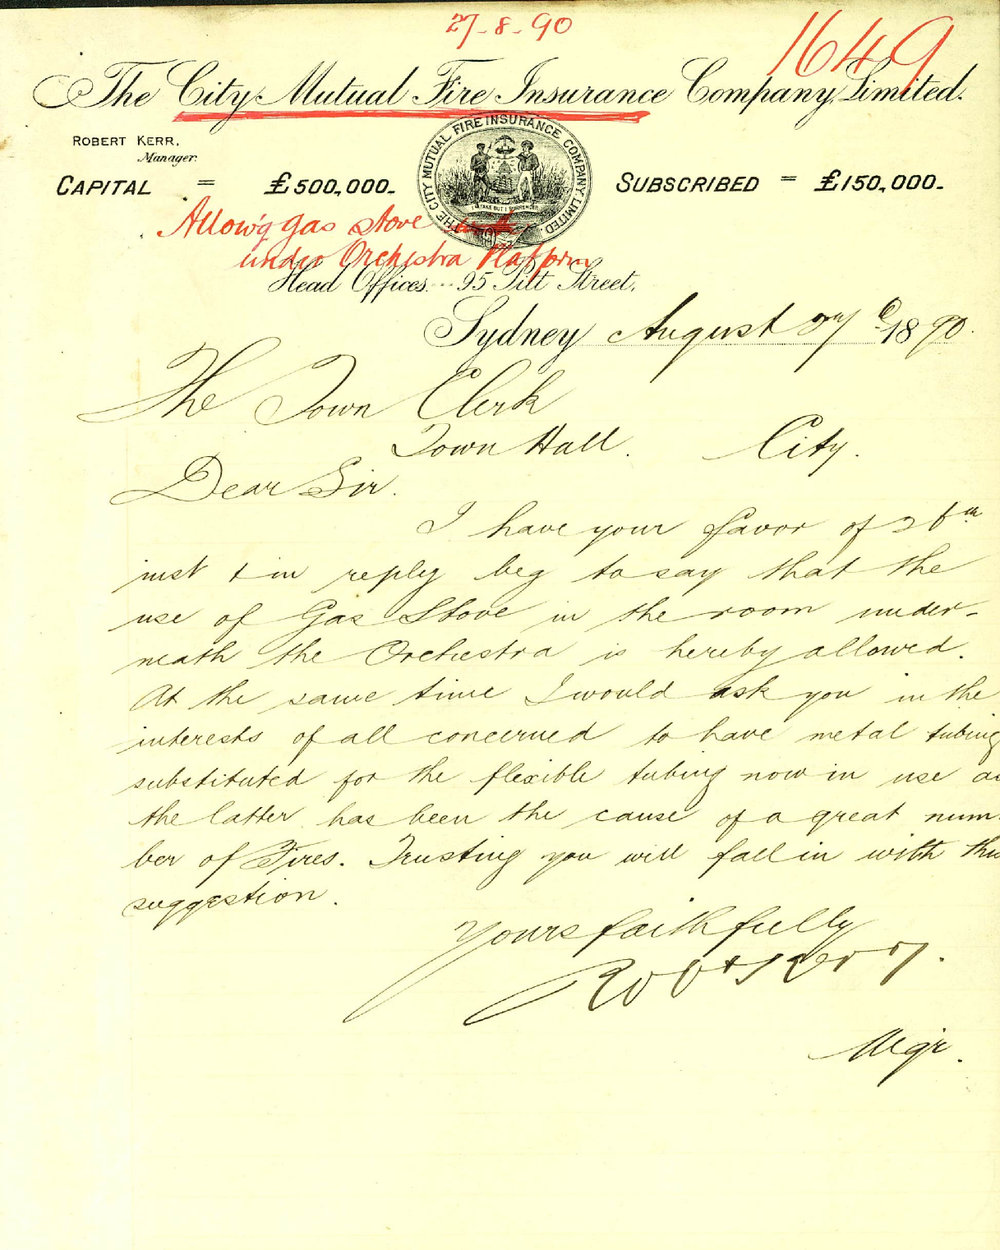 27-8-90
1649
The City Mutual Fire Insurance Company, Limited.
ROBERT KERR,
Manager.
CAPITAL = £500,000.
SUBSCRIBED = £150,000.
THE CITY MUTUAL FIRE INSURANCE COMPANY, LIMITED.
Allow'g gas stove
under Orchestra Platform
Head Offices 95 Pitt Street,
Sydney August 27 1890.
The Town Clerk
Town Hall. City.
Dear Sir.
I have your favor of 26th
inst & in reply beg to say that the
use of Gas Stove in the room under-
neath the Orchestra is hereby allowed.
At the same time I would ask you in the
interests of all concerned to have metal tubing
substituted for the flexible tubing now in use as
the latter has been the cause of a great num-
ber of Fires. Trusting you will fall in with this
suggestion.
Yours faithfully
Robt Kerr.
Mgr.